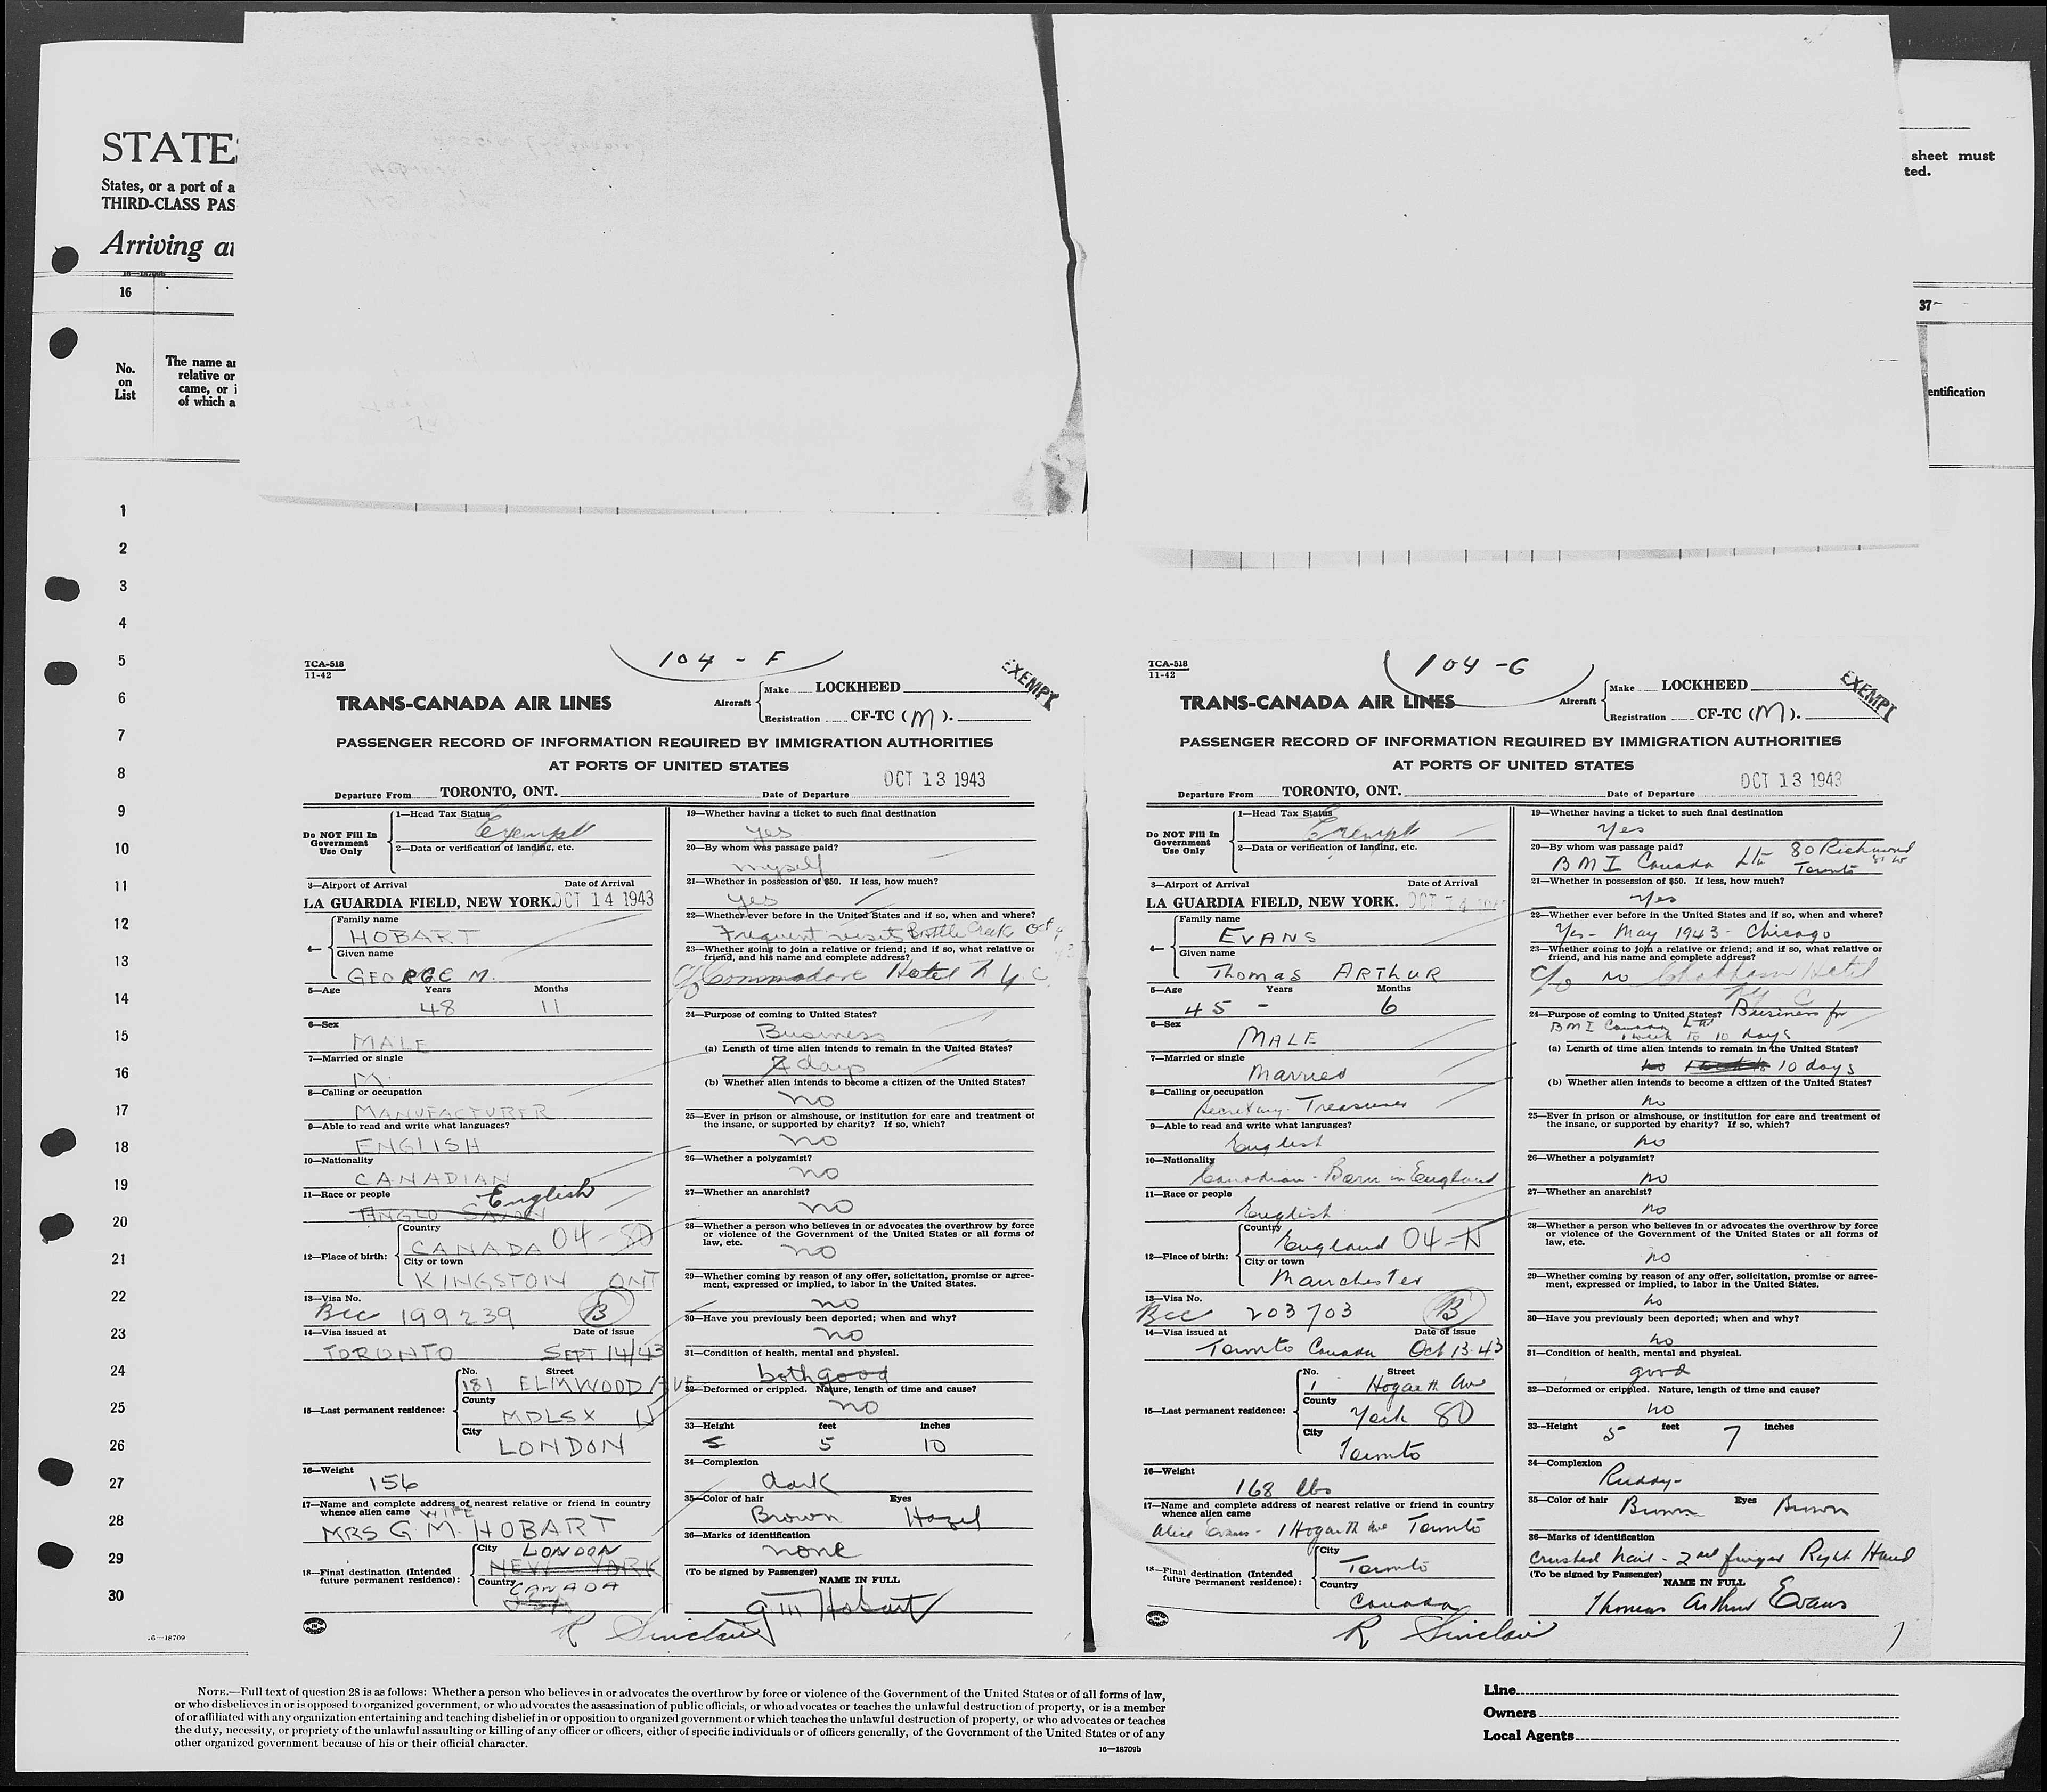 STATES
States, or a port of a
THIRD-CLASS PAS
Arriving at
16—18709b
16
No.
on
List
The name an
relative or
came, or i
of which a
sheet must
ted.
37
entification
1
2
3
4
5
6
7
8
9
10
11
12
13
14
15
16
17
18
19
20
21
22
23
24
25
26
27
28
29
30
16—18709
104 - F
TCA-518
11-42
TRANS-CANADA AIR LINES
Aircraft
Make LOCKHEED
Registration CF-TC (M).
EXEMPT
PASSENGER RECORD OF INFORMATION REQUIRED BY IMMIGRATION AUTHORITIES
AT PORTS OF UNITED STATES
OCT 13 1943
Departure From TORONTO, ONT. Date of Departure
Do NOT Fill In
Government
Use Only
1—Head Tax Status
Exempt
2—Data or verification of landing, etc.
3—Airport of Arrival Date of Arrival
LA GUARDIA FIELD, NEW YORK. OCT 14 1943
4—
Family name
HOBART
Given name
GEORGE M.
5—Age Years Months
48 11
6—Sex
MALE
7—Married or single
M.
8—Calling or occupation
MANUFACTURER
9—Able to read and write what languages?
ENGLISH
10—Nationality
CANADIAN
11—Race or people
English
ANGLO SAXON
12—Place of birth:
Country
CANADA 04-80
City or town
KINGSTON ONT
13—Visa No.
BCC 199239 B
14—Visa issued at Date of issue
TORONTO SEPT 14/43
15—Last permanent residence:
No. Street
181 ELMWOOD AVE
County
MDLSX N
City
LONDON
16—Weight
156
17—Name and complete address of nearest relative or friend in country
whence alien came WIFE
MRS G. M. HOBART
18—Final destination (Intended
future permanent residence):
City LONDON
NEW YORK
Country CANADA
USA
19—Whether having a ticket to such final destination
yes
20—By whom was passage paid?
myself
21—Whether in possession of $50. If less, how much?
yes
22—Whether ever before in the United States and if so, when and where?
Frequent visits Battle Creek Oct
23—Whether going to join a relative or friend; and if so, what relative or
friend, and his name and complete address?
c/o Commodore Hotel N Y C
24—Purpose of coming to United States?
Business
(a) Length of time alien intends to remain in the United States?
7 days
(b) Whether alien intends to become a citizen of the United States?
no
25—Ever in prison or almshouse, or institution for care and treatment of
the insane, or supported by charity? If so, which?
no
26—Whether a polygamist?
no
27—Whether an anarchist?
no
28—Whether a person who believes in or advocates the overthrow by force
or violence of the Government of the United States or all forms of
law, etc.
no
29—Whether coming by reason of any offer, solicitation, promise or agree-
ment, expressed or implied, to labor in the United States.
no
30—Have you previously been deported; when and why?
no
31—Condition of health, mental and physical.
both good
32—Deformed or crippled. Nature, length of time and cause?
no
33—Height feet inches
5 5 10
34—Complexion
dark
35—Color of hair Eyes
Brown Hazel
36—Marks of identification
none
(To be signed by Passenger)
NAME IN FULL
G M Hobart
R Sinclair
104 - G
TCA-518
11-42
TRANS-CANADA AIR LINES
Aircraft
Make LOCKHEED
Registration CF-TC (M).
EXEMPT
PASSENGER RECORD OF INFORMATION REQUIRED BY IMMIGRATION AUTHORITIES
AT PORTS OF UNITED STATES
OCT 13 1943
Departure From TORONTO, ONT. Date of Departure
Do NOT Fill In
Government
Use Only
1—Head Tax Status
Exempt
2—Data or verification of landing, etc.
3—Airport of Arrival Date of Arrival
LA GUARDIA FIELD, NEW YORK. OCT 14
4—
Family name
EVANS
Given name
Thomas ARTHUR
5—Age Years Months
45 - 6
6—Sex
MALE
7—Married or single
Married
8—Calling or occupation
Secretary-Treasurer
9—Able to read and write what languages?
English
10—Nationality
Canadian - Born in England
11—Race or people
English
12—Place of birth:
Country
England 04-N
City or town
Manchester
13—Visa No.
BCC 203703 B
14—Visa issued at Date of issue
Toronto Canada Oct 13-43
15—Last permanent residence:
No. Street
1 Hogarth Ave
County
York 80
City
Toronto
16—Weight
168 lbs
17—Name and complete address of nearest relative or friend in country
whence alien came
Alice Evans - 1 Hogarth Ave Toronto
18—Final destination (Intended
future permanent residence):
City
Toronto
Country
Canada
19—Whether having a ticket to such final destination
Yes
20—By whom was passage paid?
BMI Canada Ltd 80 Richmond St W
Toronto
21—Whether in possession of $50. If less, how much?
Yes
22—Whether ever before in the United States and if so, when and where?
Yes - May 1943 - Chicago
23—Whether going to join a relative or friend; and if so, what relative or
friend, and his name and complete address?
c/o no Chatham Hotel
N Y C
24—Purpose of coming to United States? Business for
BMI Canada Ltd
1 week to 10 days
(a) Length of time alien intends to remain in the United States?
10 days
(b) Whether alien intends to become a citizen of the United States?
no
25—Ever in prison or almshouse, or institution for care and treatment of
the insane, or supported by charity? If so, which?
no
26—Whether a polygamist?
no
27—Whether an anarchist?
no
28—Whether a person who believes in or advocates the overthrow by force
or violence of the Government of the United States or all forms of
law, etc.
no
29—Whether coming by reason of any offer, solicitation, promise or agree-
ment, expressed or implied, to labor in the United States.
no
30—Have you previously been deported; when and why?
no
31—Condition of health, mental and physical.
good
32—Deformed or crippled. Nature, length of time and cause?
no
33—Height feet inches
5 7
34—Complexion
Ruddy-
35—Color of hair Brown Eyes Brown
36—Marks of identification
Crushed Nail - 2nd finger Right Hand
(To be signed by Passenger)
NAME IN FULL
Thomas Arthur Evans
R Sinclair
NOTE.—Full text of question 28 is as follows: Whether a person who believes in or advocates the overthrow by force or violence of the Government of the United States or of all forms of law,
or who disbelieves in or is opposed to organized government, or who advocates the assassination of public officials, or who advocates or teaches the unlawful destruction of property, or is a member
of or affiliated with any organization entertaining and teaching disbelief in or opposition to organized government or which teaches the unlawful destruction of property, or who advocates or teaches
the duty, necessity, or propriety of the unlawful assaulting or killing of any officer or officers, either of specific individuals or of officers generally, of the Government of the United States or of any
other organized government because of his or their official character.
16—18709b
Line
Owners
Local Agents